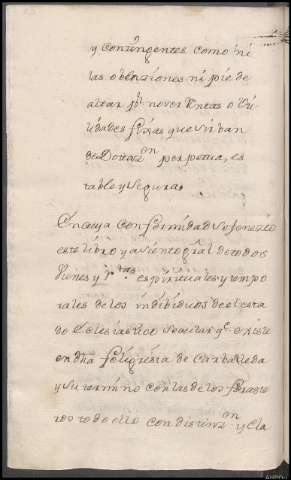 y contingentes como ni
tas obbenziones ni pie de
altar pr. no ver Rentas o Vti
lidades fixas que sirban
de Dotacion perpetua, es
table y segura.
En cuya conformidad se fenezio
este libro y asiento gral de todos
vienes y rtas espirituales y tempo
rales de los indibiduos de el esta
do Eclesiastico Secular qe existe
en dha feligresia de Carballeda
y su termino con las de los foraste
ros todo ello con distinzon y cla